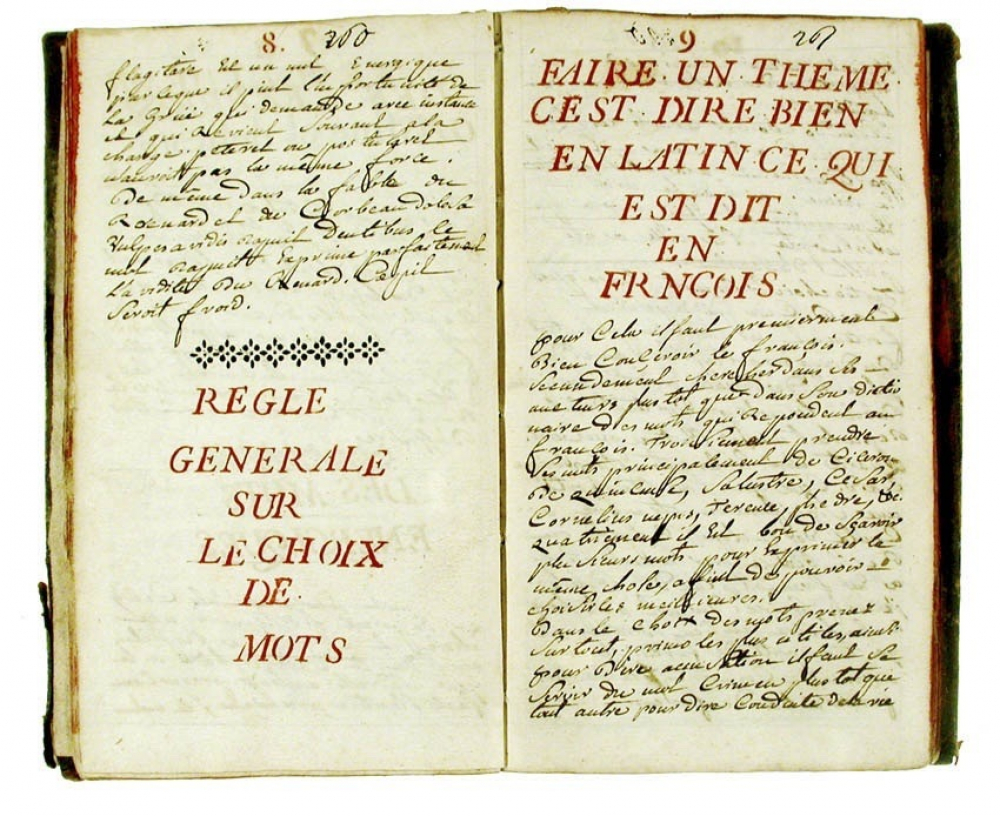 8. 260
flagitare Est un mot Energique
par lequel il peint l'importunité de
La Grüe qui demande avec instance
et qui Revient Souvant a la
charge. peteret ou postularet
n'auroit pas la même force.
De même dans la fable du
Renard et du Corbeau
Vulpes avidis Rapuit Dentibus le
mot Rapuit Exprime parfaitement
L'avidité Du Renard. Cepit
Seroit froid.
REGLE
GENERALE
SUR
LE CHOIX
DE.
MOTS
9 261
FAIRE · UN · THEME ·
CEST · DIRE BIEN
EN LATIN · CE · QUI
EST DIT
EN
FRNCOIS
pour Cela il faut premierment
Bien Conçevoir le françois.
Secondement chercher dans les
auteurs plus tot que dans Son dictio
naire des mots qui Repondent au
françois. Troisiement prendre
Ses mots principalement de Ciceron
De, Saluste, Cesar,
Cornelius nepos, Terence, phedre, &c.
quatriement il Est bon de Sçavoir
plusieurs mots pour Exprimer la
même chose, affin de pouvoir
choisir les meilieures.
Dans le choix des mots prenez
Surtout, les plus usites, ainsi
pour Dire accusation il faut Se
Servir du mot Crimen plus tot que
tout autre pour dire Conduite de la vie